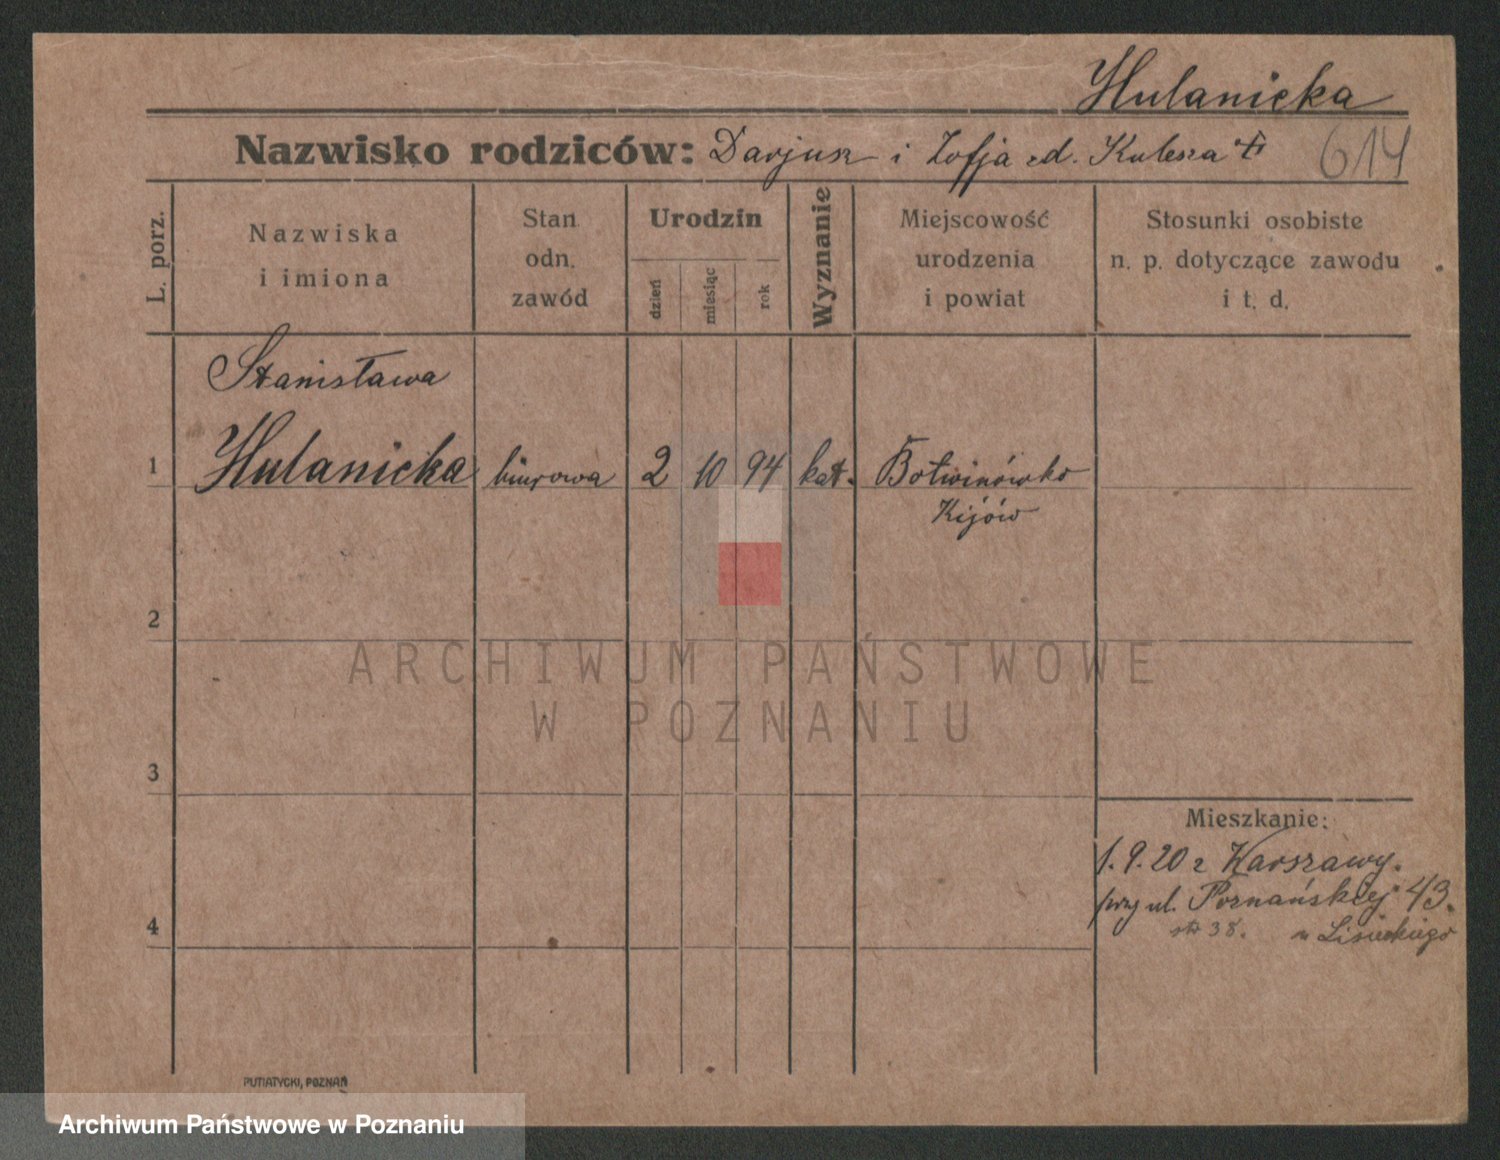 Hulanicka
Nazwisko rodziców: Darjusz i Zofja zd. Kulesza
614
L. porz.
Nazwiska
i imiona
Stan.
odn.
zawód
Urodzin
dzień
miesiąc
rok
Wyznanie
Miejscowość
urodzenia
i powiat
Stosunki osobiste
n. p. dotyczące zawodu
i t. d.
Stanisława
1 Hulanicka biurowa 2 10 94 kat. Botwinówko
Kijów
2
ARCHIWUM PAŃSTWOWE
W POZNANIU
3
Mieszkanie:
1.9.20 z Warszawy.
przy ul. Poznańskiej 43.
4
38. u Lisieckiego
PUTIATYCKI, POZNAŃ
Archiwum Państwowe w Poznaniu